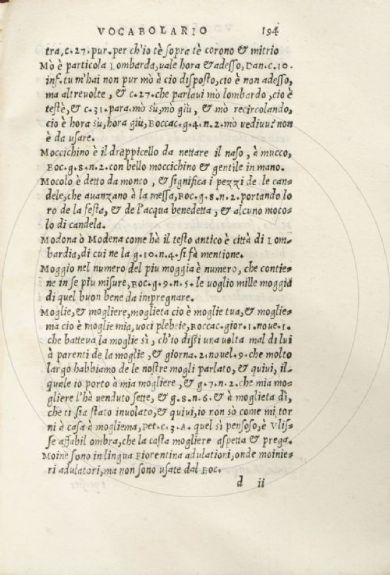 VOCABOLARIO 194
tra, c. 27. pur. per ch'io tè sopra tè corono & mitrio
Mò è particola Lombarda, vale hora & adesso, Dan. c. 10.
inf. tu m'hai non pur mò è cio disposto, cio è non adesso,
ma altre volte, & c. 27. che parlavi mò lombardo, cio è
testè, & c. 31. para. mò sù, mò giu, & mò recircolando,
cio è hora sù, hora giù, Boccac. g. 4. n. 2. mò vediuu! non
è da usare.
Moccichino è il drappicello da nettare il naso, è mucco,
Boc. g. 8. n. 2. con bello moccichino & gentile in mano.
Mocolo è detto da monco, & significa i pezzi de le can-
dele, che auanzano à la messa, Boc. g. 8. n. 2. portando lo
ro de la festa, & de l'acqua benedetta, & alcuno moco-
lo di candela.
Modona ò Modena come hà il testo antico è città di Lom-
bardia, di cui ne la g. 10. n. 4. si fà mentione.
Moggio nel numero del piu moggia è numero, che contie-
ne in se piu misure, Boc. g. 9. n. 5. le uoglio mille moggia
di quel buon bene da impregnare.
Moglie, & mogliere, moglieta cio è moglie tua, & moglie-
ma cio è moglie mia, voci plebeie, Boccac. gior. 1. noue. 1.
che batteva la moglie sì, ch'io dissi una uolta mal di lui
à parenti de la moglie, & giorna. 2. nouel. 9. che molto
largo habbiamo de le nostre mogli parlato, & quivi, il-
quale io porto à mia mogliere, & g. 7. n. 2. che mia mo-
gliere l'hà venduto sette, & g. 8. n. 6. & à moglieta dì,
che ti sia stato inuolato, & quiui, io non sò come mi tor
ni à casa à mogliema, Pet. c. 3. A. quel sì pensoso, è Vlis-
se affabil ombra, che la casta mogliere aspetta & prega.
Moine sono in lingua Fiorentina adulatiori, onde moinie-
ri adulatori, ma non sono usate dal Boc.
d ii